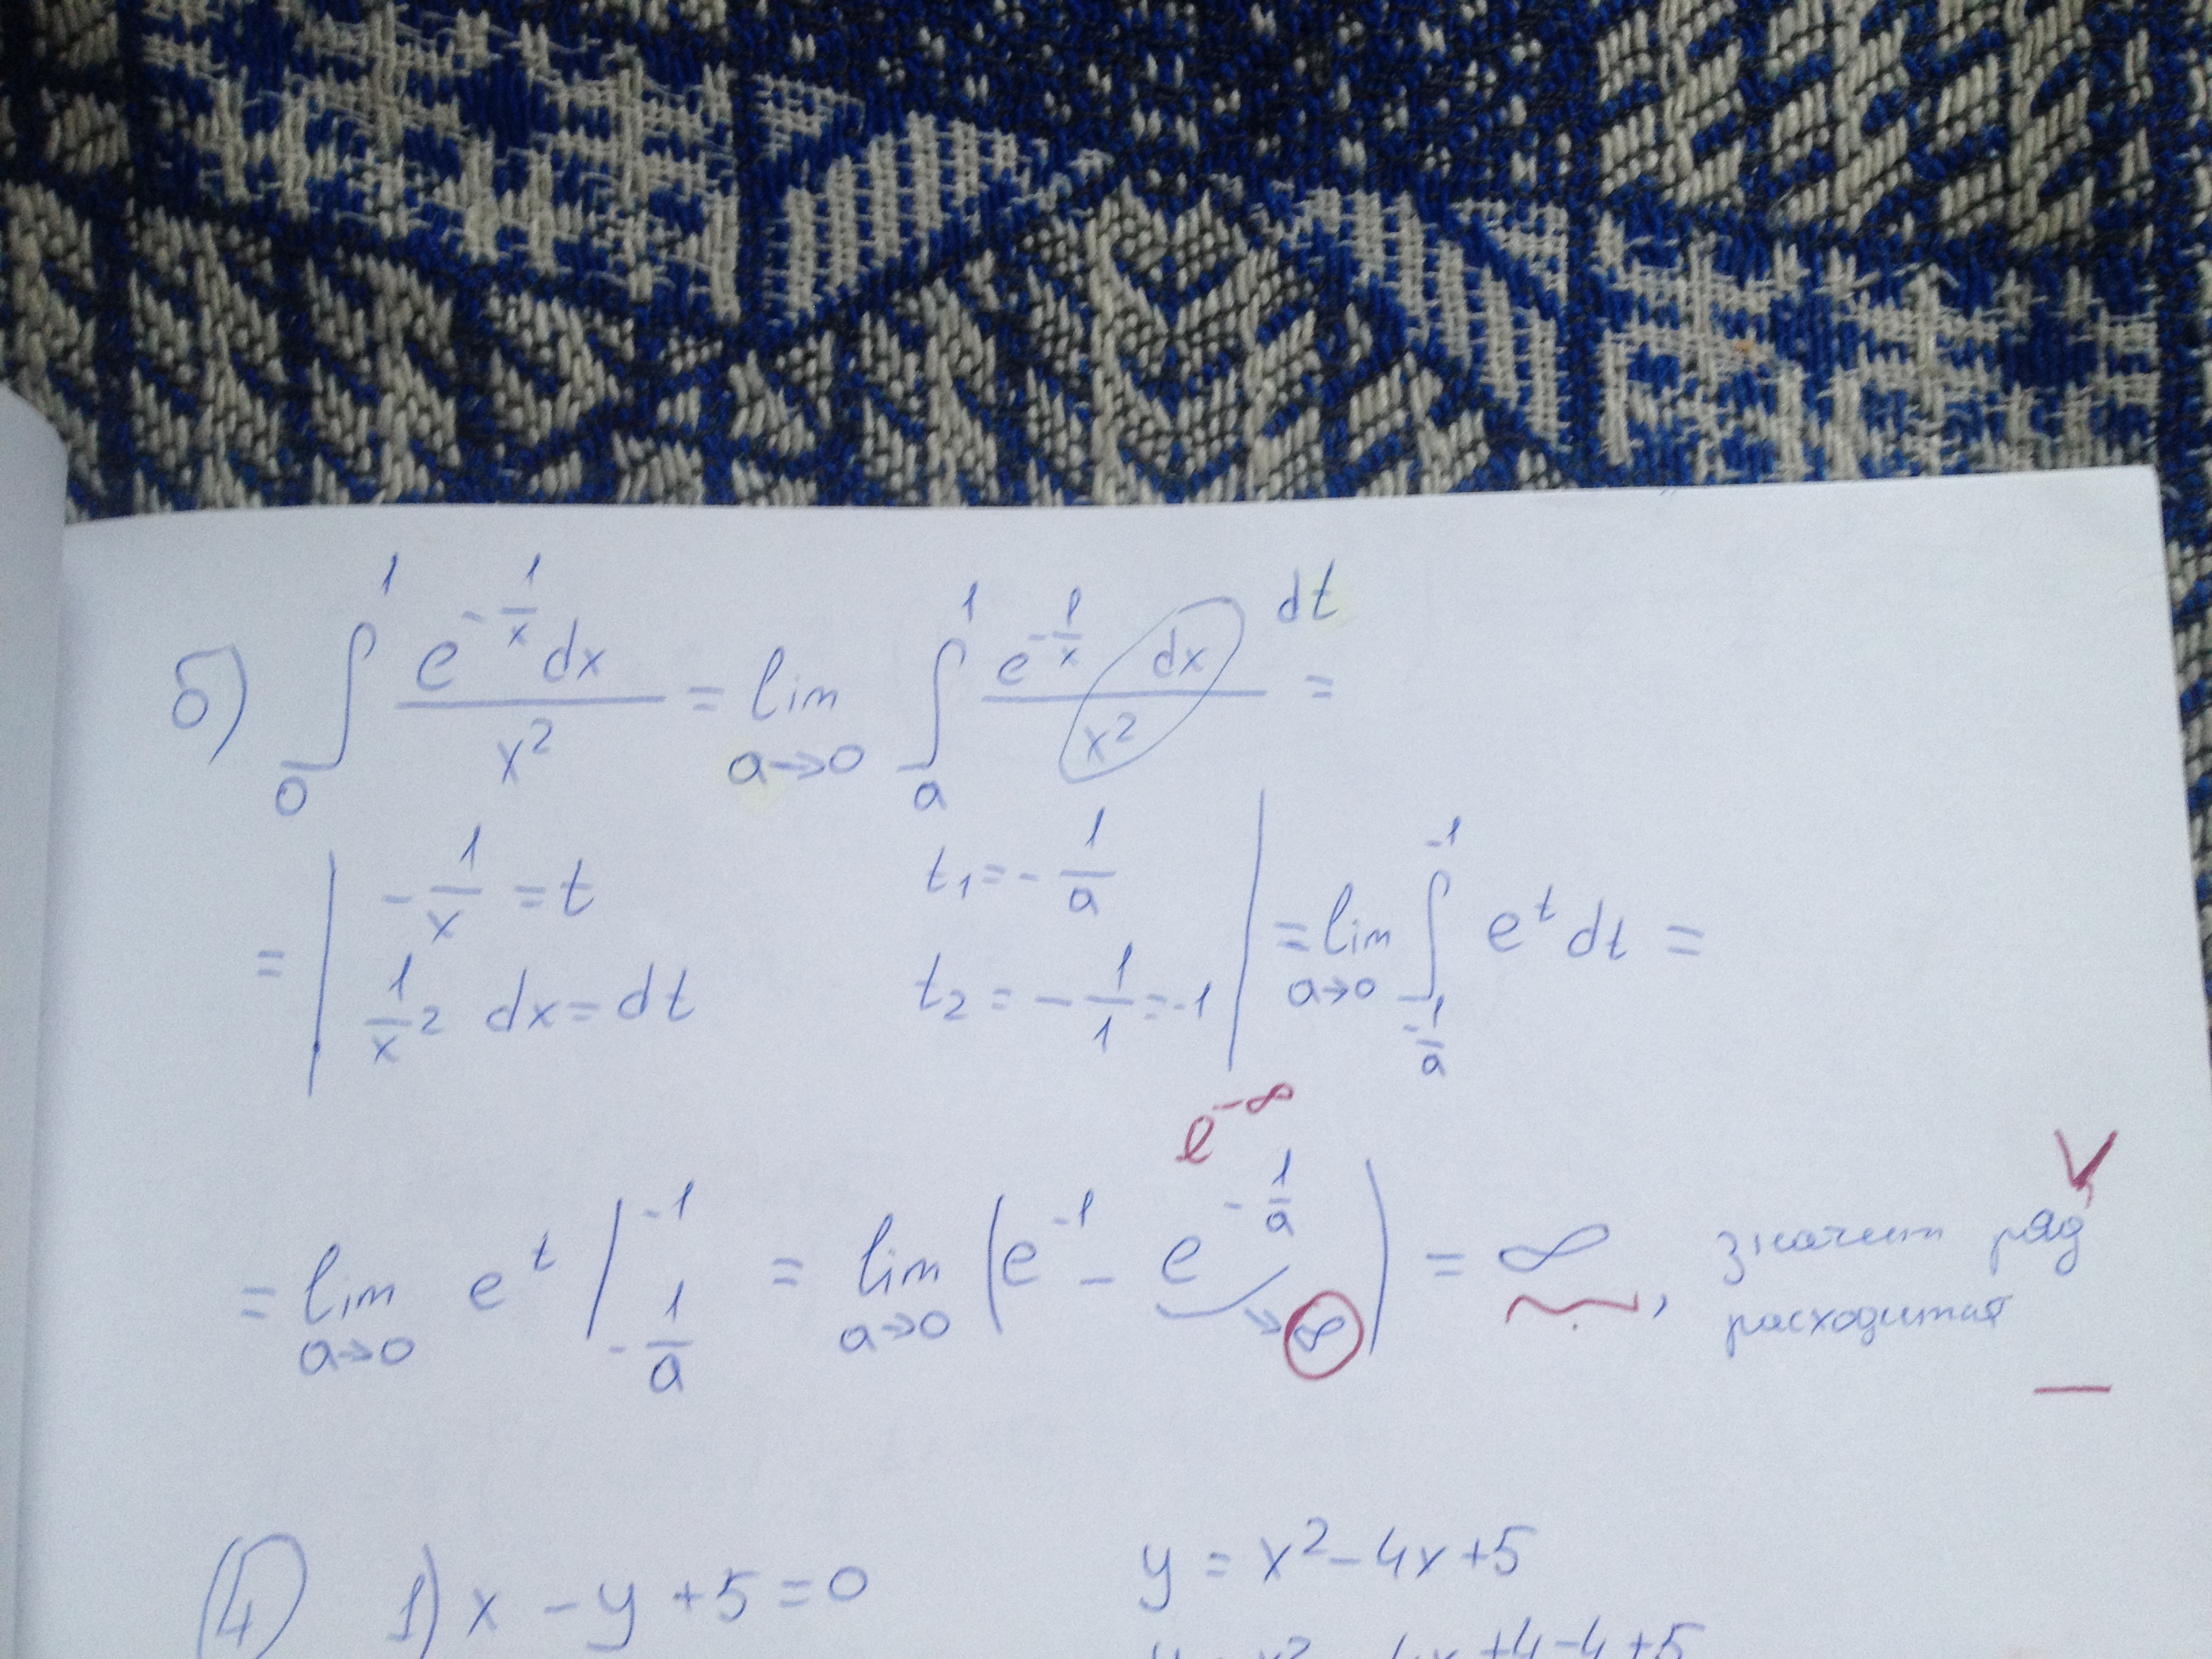 б) ∫₀¹ e^(-1/x) dx / x² = lim a→0 ∫ₐ¹ e^(-1/x) dx / x² = dt
= | -1/x = t t₁ = -1/a
1/x² dx = dt t₂ = -1/1 = -1 | = lim a→0 ∫_(-1/a)^(-1) eᵗ dt =
e^(-∞) V
= lim a→0 eᵗ |_(-1/a)^(-1) = lim a→0 (e^(-1) - e^(-1/a) → ∞) = ∞, значит ряд
расходится
(4) 1) x - y + 5 = 0 y = x² - 4x + 5
x² - 4x + 4 - 4 + 5